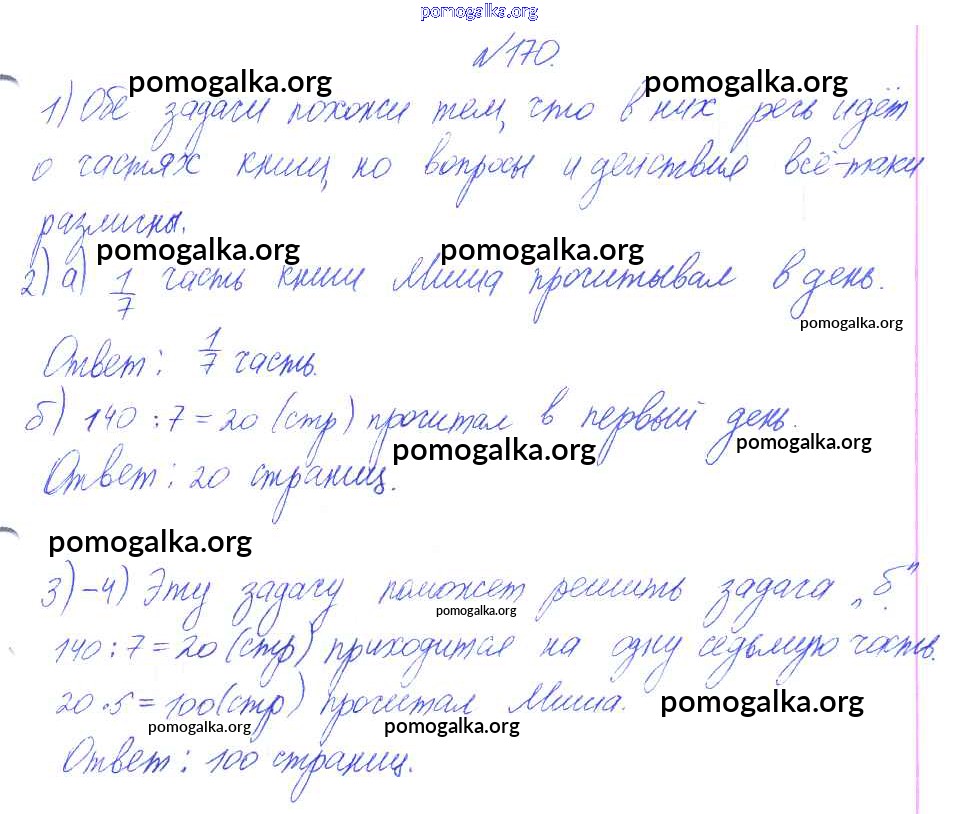 pomogalka.org
№170.
pomogalka.org pomogalka.org
1) Обе задачи похожи тем, что в них речь идёт
о частях книги, но вопросы и действия всё-таки
различны.
pomogalka.org pomogalka.org
2) а) 1/7 часть книги Миша прочитывал в день.
pomogalka.org
Ответ: 1/7 часть.
б) 140 : 7 = 20 (стр) прочитал в первый день.
pomogalka.org pomogalka.org
Ответ: 20 страниц.
pomogalka.org
3)-4) Эту задачу поможет решить задача „б".
pomogalka.org
140 : 7 = 20 (стр) приходится на одну седьмую часть.
20 · 5 = 100 (стр) прочитал Миша.
pomogalka.org
pomogalka.org pomogalka.org
Ответ: 100 страниц.